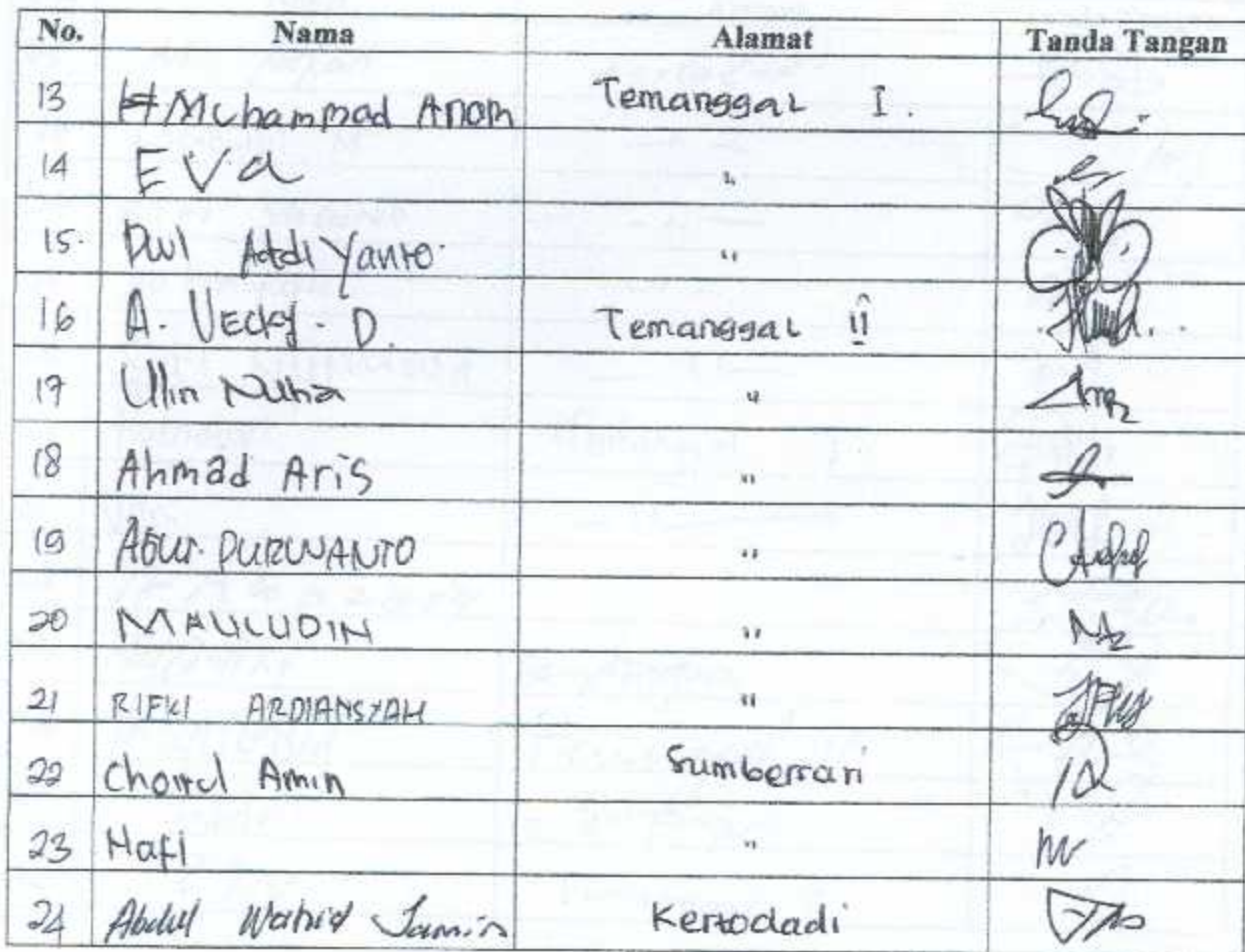 No. Nama Alamat Tanda Tangan
13 H Muhammad Anom Temanggal I.
14 EVa "
15. Dwi Addi Yanto "
16 A. Vecky. D. Temanggal II
17 Ulin Nuha "
18 Ahmad Aris "
19 AGUS PURWANTO "
20 MAULUDIN "
21 RIFKI ARDIANSYAH "
22 Choirul Amin Sumbersari
23 Hafi "
24 Abdul Wahid Jamin Kertodadi